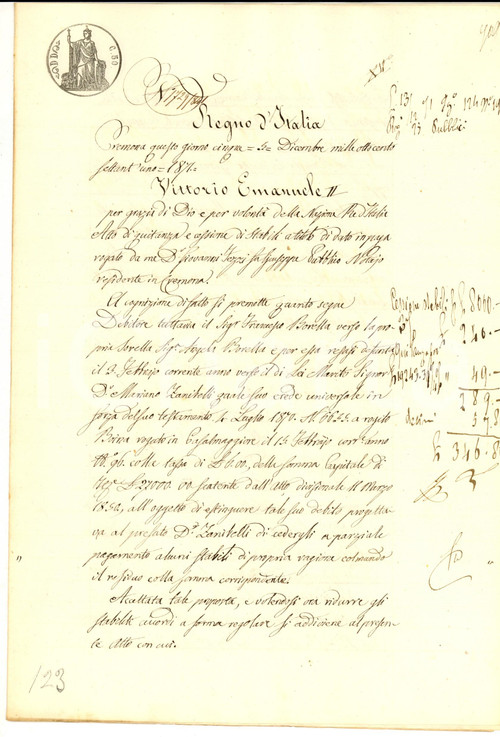 C. 50
Regno d'Italia
Cremona questo giorno cinque = 5 = Dicembre mille ottocento
settant'uno = 1871 =
Vittorio Emanuele II
per grazia di Dio e per volontà della Nazione Re d'Italia
Atto di quitanza e cessione di Stabili a titolo di dato in paga
rogato da me Dr Giovanni fu Giuseppe Pubblico Notajo
residente in Cremona.
A cognizione di fatto si premette quanto segue
Debitore tuttavia il Sigr Francesco Borella verso la pro
pria Sorella Sigra Angela Borella e per essa resasi defunta
il 3 Febbrajo corrente anno verso il di Lei Marito Signor
Dr Mariano Zanitelli quale suo erede universale in
forza del suo testamento 4 Luglio 1870 a rogito
rogato in Casalmaggiore il 15 Febbrajo corr. anno
colla tassa di L 6.00, della somma Capitale di
22000 00 portante dall'Atto divisionale 11 Marzo
1852, all'oggetto di estinguere tale suo debito progetta
va al prefato Dr Zanitelli di cedergli a parziale
pagamento alcuni stabili di propria ragione colmando
il residuo colla somma corrispondente.
Accettata tale proposta, e volendosi ora ridurre gli
stabiliti accordi a forma regolare si addiviene al presen-
te Atto con cui.
8000.-
240.-
49.-
289.-
57.8
346.8
123